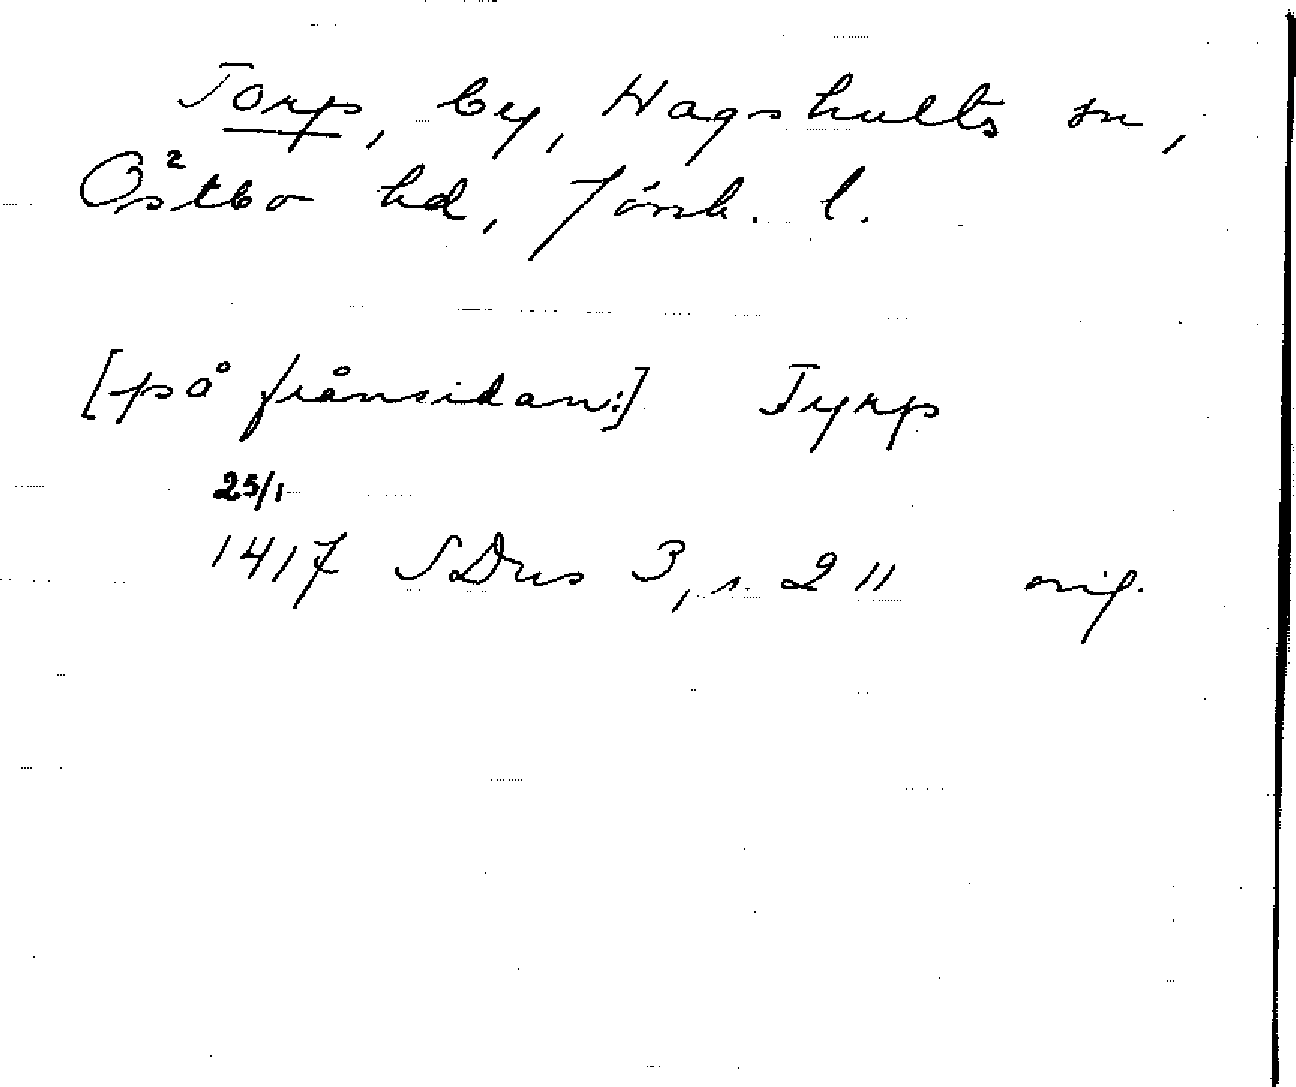 Torp, by, Hagshults sn,
Östbo hd, Jönk. l.
[på frånsidan:] Tyrp
25/1
1417 SDns 3, s. 211 orig.